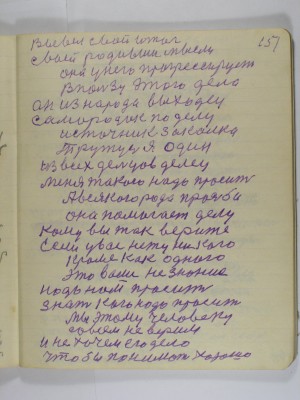 15)
Вывел свой итог
Своей родившей мысли
они у него прогрессирует
В пользу этого дело
он из народа выходец
самородок по делу
источник закалка
Тружусь я один
из всех делцов делец
меня такого надо просить
А всякого рода просьби
она помогает делу
кому вы так верите
Если у вас нету никого
кроме как одного
Это ваше незнание
надо нам просить
знать кого надо просить
Мы этому человеку
совсем не верим
и не хочем его дело
чтобы понимат хорошо